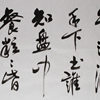 禾下土誰
知盤中
餐粒々皆